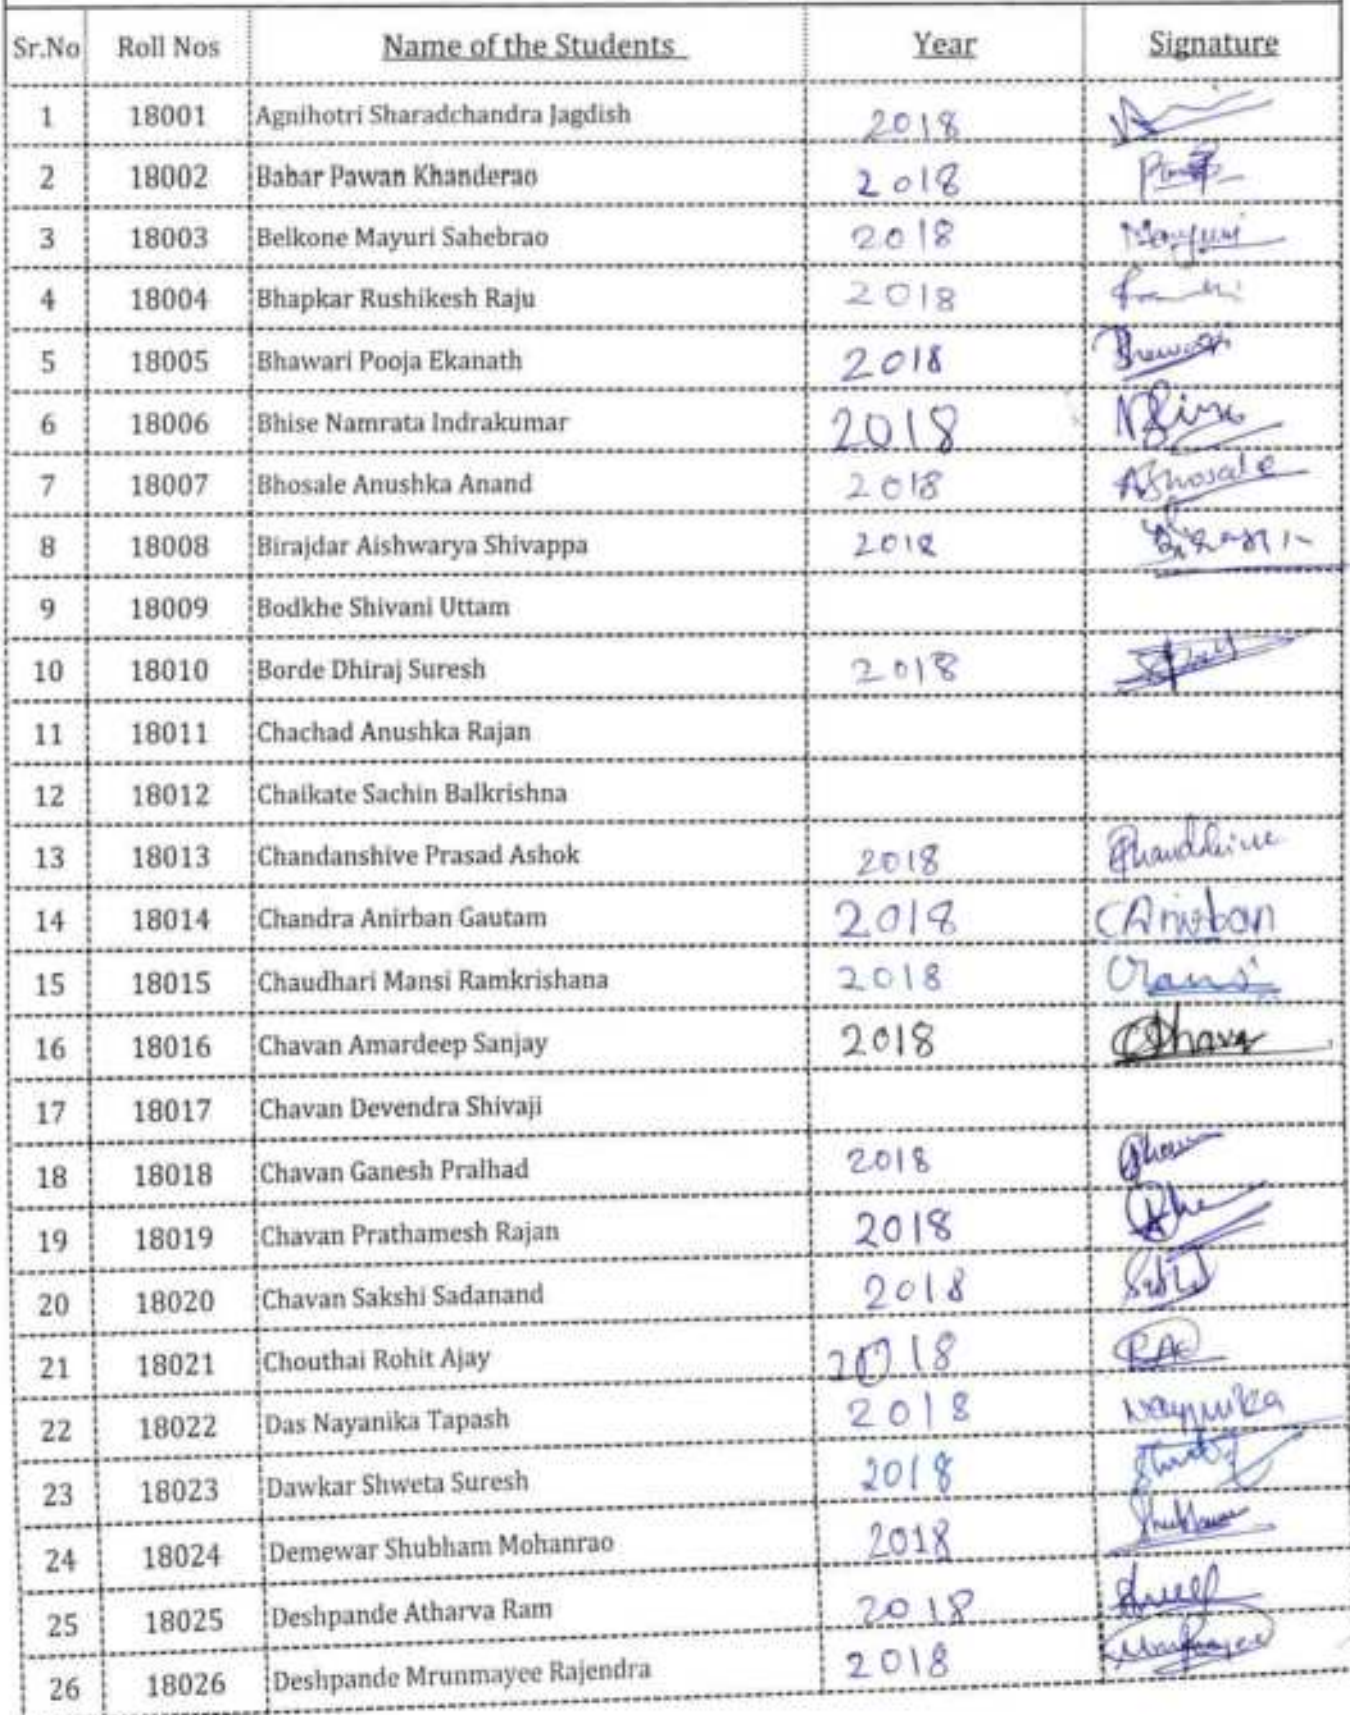 Sr.No Roll Nos Name of the Students Year Signature
1 18001 Agnihotri Sharadchandra Jagdish 2018
2 18002 Babar Pawan Khanderao 2018
3 18003 Belkone Mayuri Sahebrao 2018 Mayuri
4 18004 Bhapkar Rushikesh Raju 2018
5 18005 Bhawari Pooja Ekanath 2018
6 18006 Bhise Namrata Indrakumar 2018
7 18007 Bhosale Anushka Anand 2018 ABhosale
8 18008 Birajdar Aishwarya Shivappa 2018
9 18009 Bodkhe Shivani Uttam
10 18010 Borde Dhiraj Suresh 2018
11 18011 Chachad Anushka Rajan
12 18012 Chaikate Sachin Balkrishna
13 18013 Chandanshive Prasad Ashok 2018
14 18014 Chandra Anirban Gautam 2018 CAnirban
15 18015 Chaudhari Mansi Ramkrishana 2018
16 18016 Chavan Amardeep Sanjay 2018
17 18017 Chavan Devendra Shivaji
18 18018 Chavan Ganesh Pralhad 2018
19 18019 Chavan Prathamesh Rajan 2018
20 18020 Chavan Sakshi Sadanand 2018
21 18021 Chouthai Rohit Ajay 2018 RAC
22 18022 Das Nayanika Tapash 2018 Nayanika
23 18023 Dawkar Shweta Suresh 2018
24 18024 Demewar Shubham Mohanrao 2018
25 18025 Deshpande Atharva Ram 2018
26 18026 Deshpande Mrunmayee Rajendra 2018